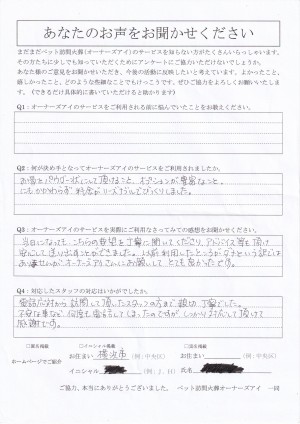 あなたのお声をお聞かせください
まだまだペット訪問火葬(オーナーズアイ)のサービスを知らない方がたくさんいらっしゃいます。
その方たちに少しでも知っていただくためにアンケートにご協力いただけないでしょうか。
あなた様のご意見をお聞かせいただき、今後の活動に反映したいと考えています。よかったこと、
嬉しかったこと、どのような些細なことでもけっこうです。ぜひご協力をよろしくお願いいたします。
(できるだけ具体的に書いていただけると助かります)
Q1:オーナーズアイのサービスをご利用される前に悩んでいたことをお教えください。
Q2:何が決め手となってオーナーズアイのサービスをご利用されましたか。
お骨をパウダー状にして頂けること、オプションが豊富なこと。
にもかかわらず料金がリーズナブルでびっくりしました。
Q3:オーナーズアイのサービスを実際にご利用なさってみての感想をお聞かせください。
当日になっても、こちらの要望を丁寧に聞いてくださり、アドバイス等を頂け
安心して送り出すことができました。以前利用したところがダメという訳では
ありませんが、オーナーズアイさんにお願いして とても良かったです。
Q4:対応したスタッフの対応はいかがでしたか。
電話応対から訪問して頂いたスタッフの方まで親切、丁寧でした。
不安な事など、何度も電話してしまったのですが しっかり対応して頂けて
感謝です。
□匿名掲載 □イニシャル掲載 □実名掲載
お住まい 横浜市 (例:中央区) お住まい (例:中央区)
ホームページでご紹介
イニシャル (例:J. H) 氏名
ご協力、本当にありがとうございました。 ペット訪問火葬オーナーズアイ 一同